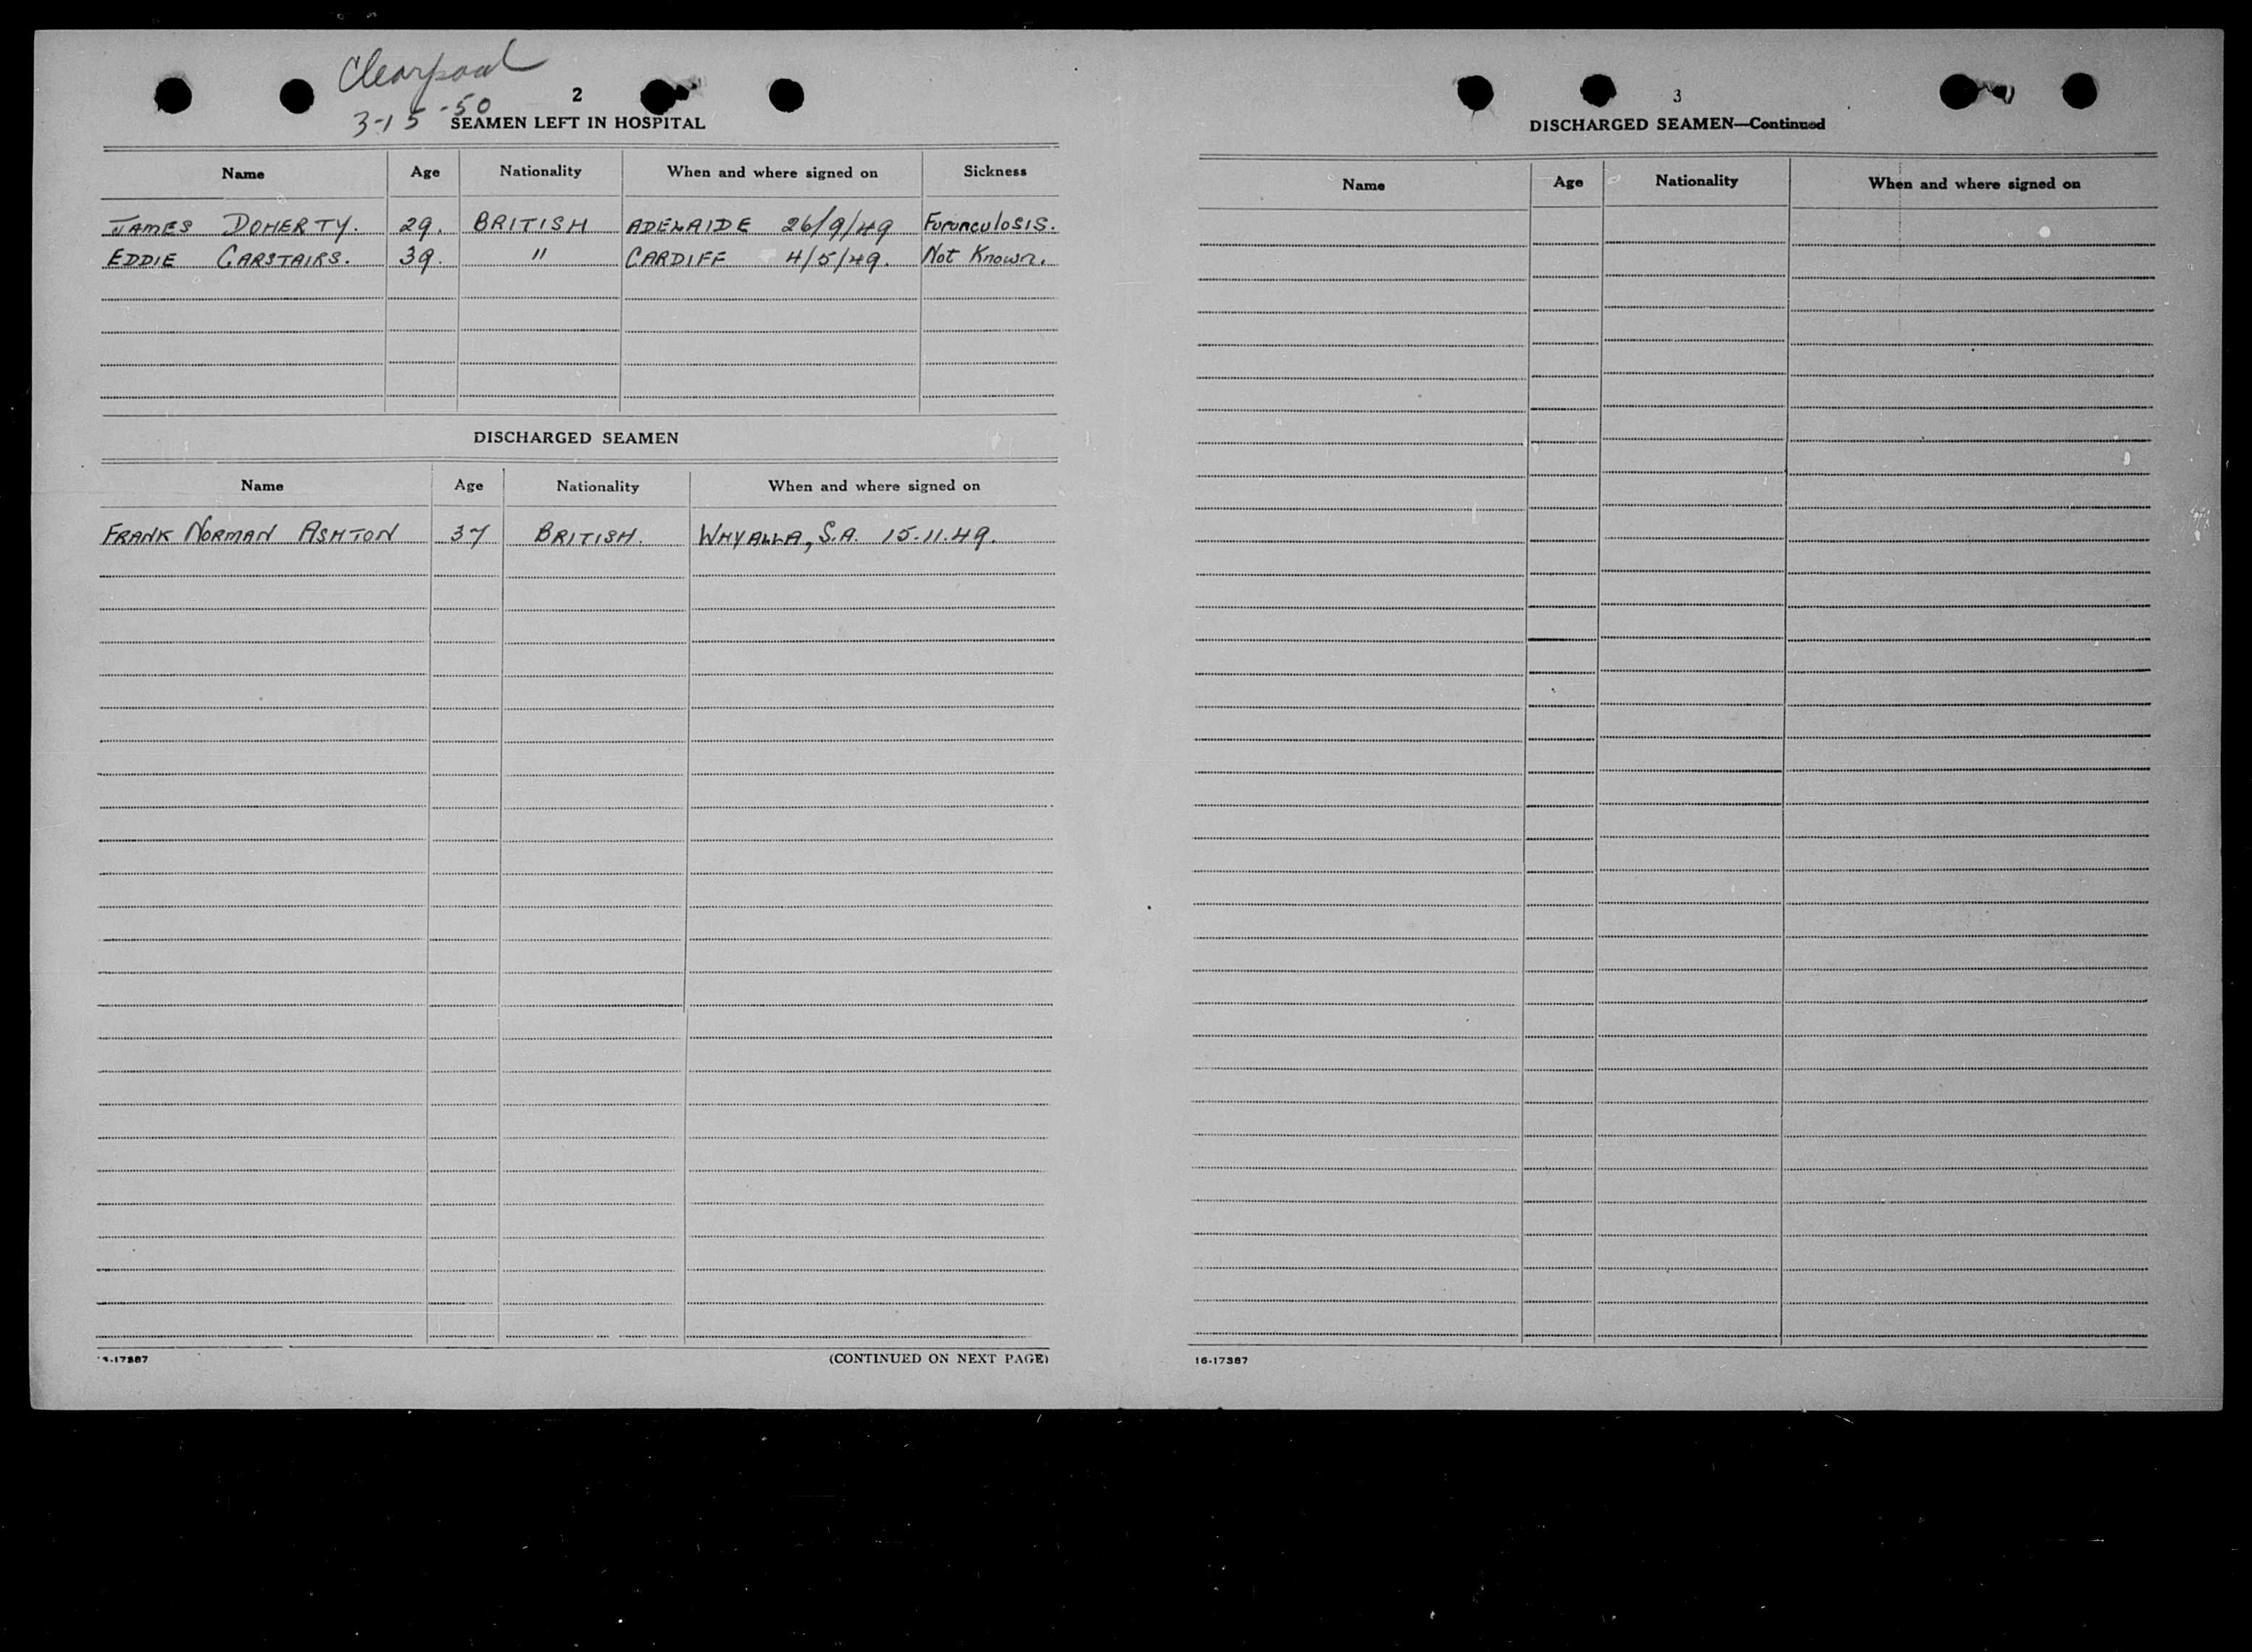 Clearpool
3-15-50
2
SEAMEN LEFT IN HOSPITAL
Name Age Nationality When and where signed on Sickness
JAMES DOHERTY. 29. BRITISH ADELAIDE 26/9/49 Furunculosis.
EDDIE CARSTAIRS. 39. " CARDIFF 4/5/49. Not Known.
DISCHARGED SEAMEN
Name Age Nationality When and where signed on
FRANK NORMAN ASHTON 37 BRITISH. WHYALLA, S.A. 15.11.49.
16-17387 (CONTINUED ON NEXT PAGE)
3
DISCHARGED SEAMEN—Continued
Name Age Nationality When and where signed on
16-17387